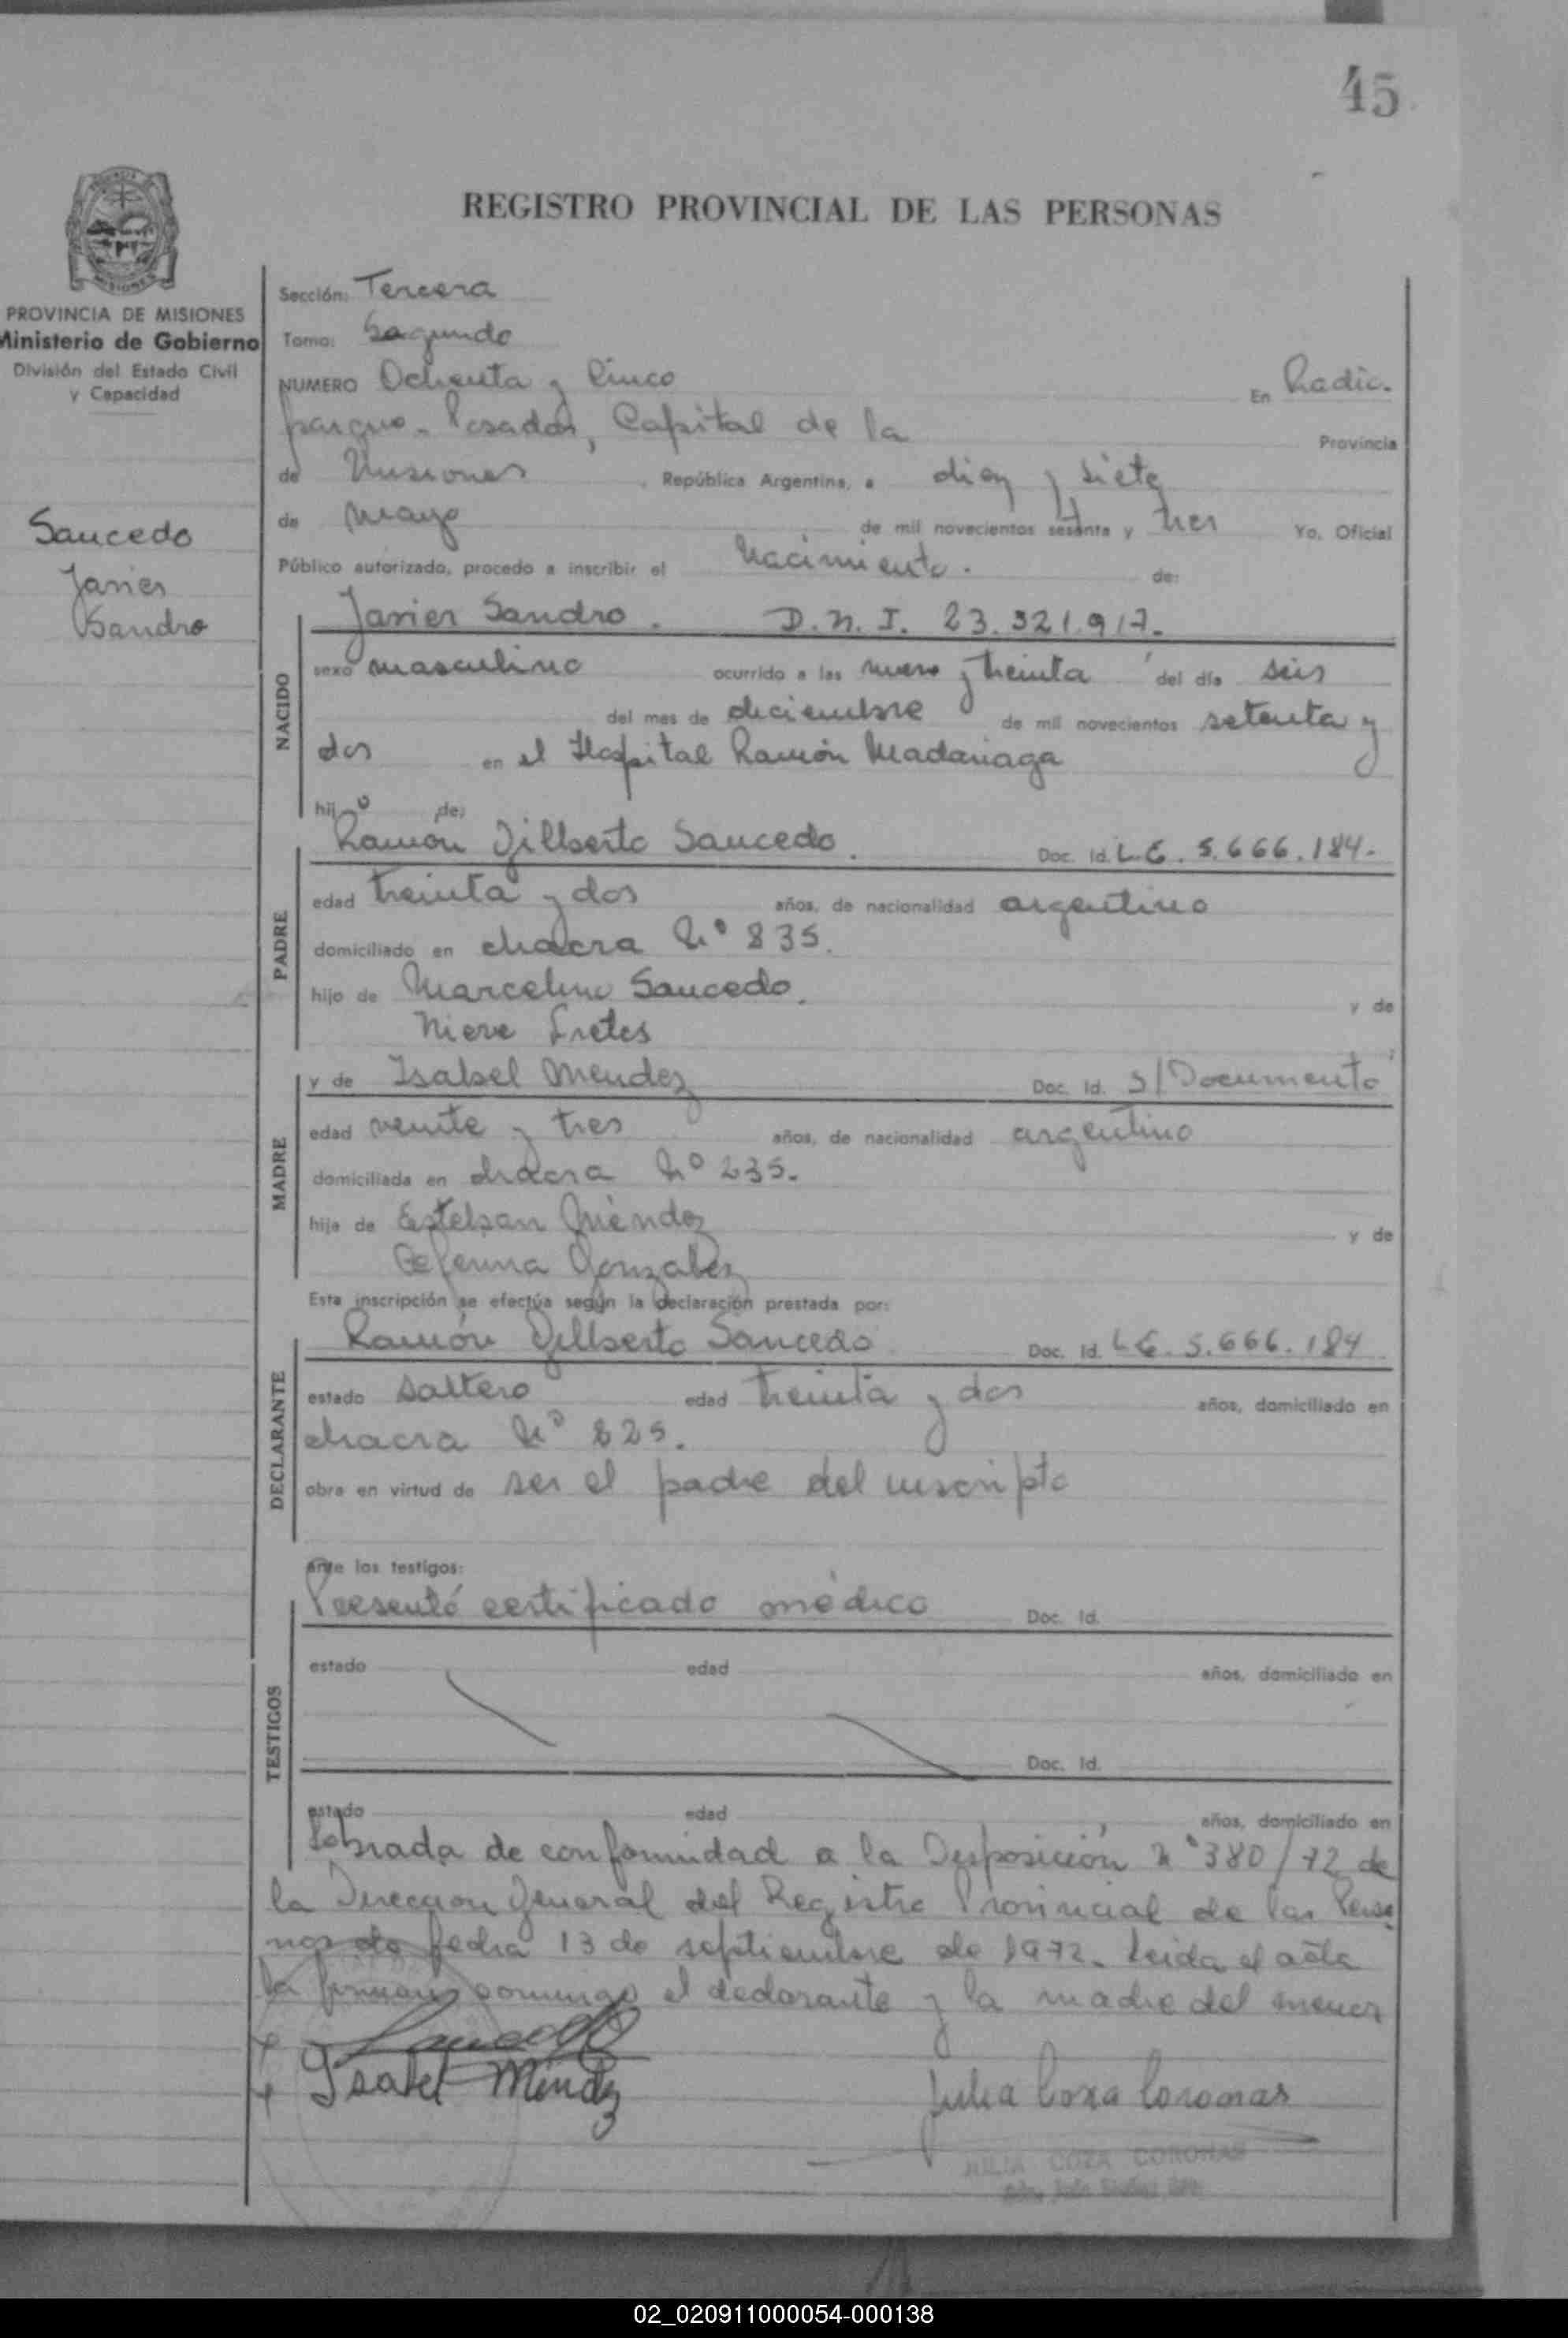 45
REGISTRO PROVINCIAL DE LAS PERSONAS
PROVINCIA DE MISIONES
Ministerio de Gobierno
División del Estado Civil
y Capacidad
Saucedo
Javier
Sandro
Sección: Tercera
Tomo: Segundo
NUMERO Ochenta y Cinco En Radic.
parque - Posadas, Capital de la Provincia
de Misiones, República Argentina, a diez y siete
de mayo de mil novecientos setenta y tres Yo, Oficial
Público autorizado, procedo a inscribir el Nacimiento. de:
NACIDO
Javier Sandro. D.N.I. 23.321.917.
sexo masculino ocurrido a las nueve y treinta del día seis
del mes de diciembre de mil novecientos setenta y
dos en el Hospital Ramón Madariaga
hijo de:
PADRE
Ramón Gilberto Saucedo. Doc. Id. L.E. 5.666.184.
edad treinta y dos años, de nacionalidad argentino
domiciliado en chacra Nº 835.
hijo de Marcelino Saucedo. y de
Nieve Fretes
MADRE
y de Isabel Mendez Doc. Id. S/Documento
edad veinte y tres años, de nacionalidad argentino
domiciliada en chacra Nº 235.
hija de Esteban Méndez y de
Ceferina Gonzalez
Esta inscripción se efectúa según la declaración prestada por:
DECLARANTE
Ramón Gilberto Saucedo Doc. Id. L.E. 5.666.184
estado soltero edad treinta y dos años, domiciliado en
chacra Nº 825.
obra en virtud de ser el padre del inscripto
ante los testigos:
TESTIGOS
Presentó certificado médico Doc. Id.
estado edad años, domiciliado en
Doc. Id.
estado edad años, domiciliado en
Labrada de conformidad a la Disposición Nº 380/72 de
la Dirección General del Registro Provincial de las Perso
nas de fecha 13 de septiembre de 1972. Leida el acta
la firman conmigo el declarante y la madre del menor
Saucedo
Isabel Méndez
Julia Coza Coronas
JULIA COZA CORONAS
02_020911000054-000138